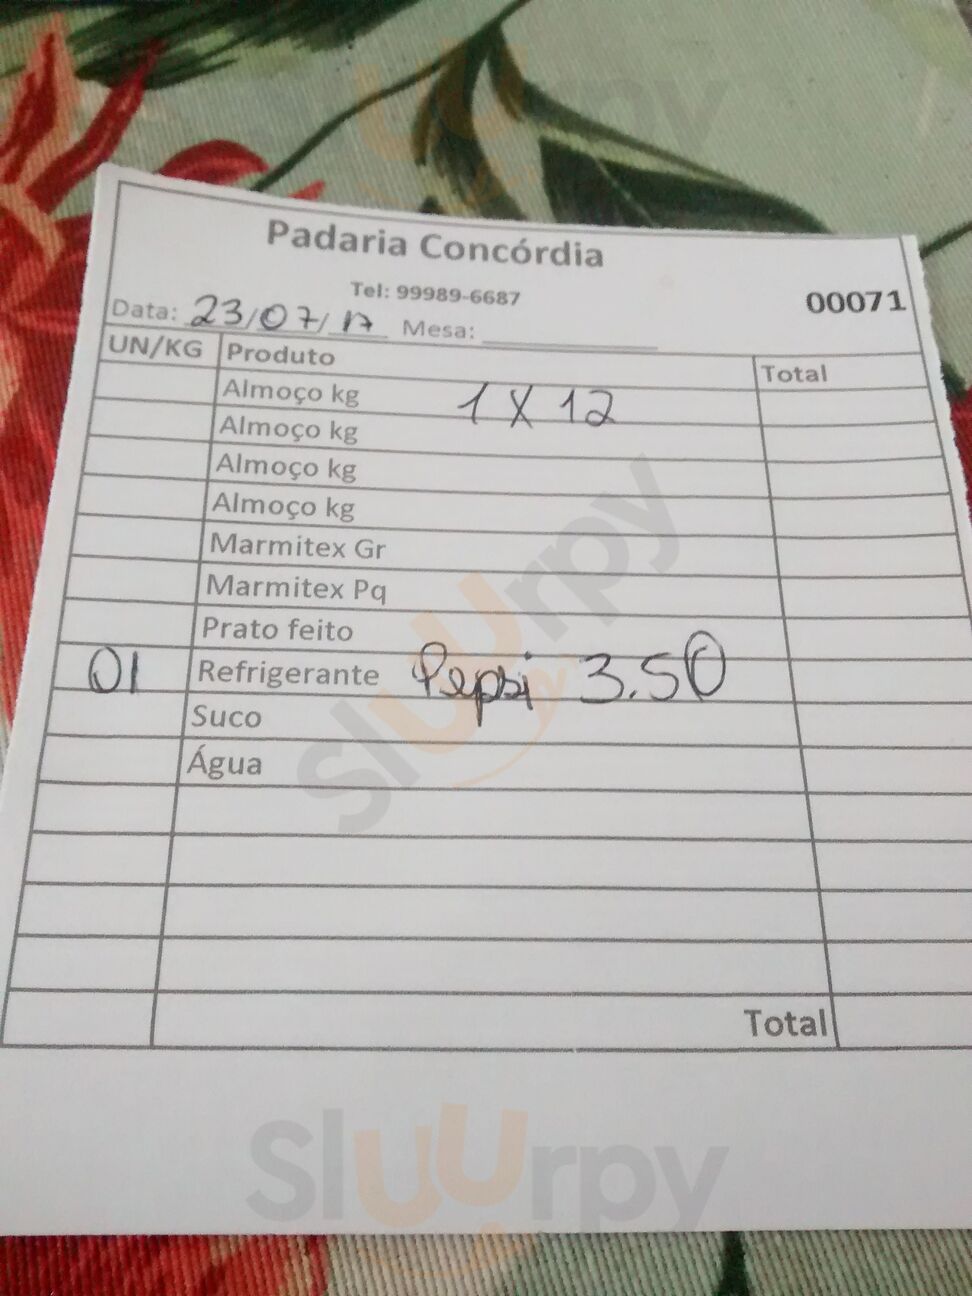 Padaria Concórdia
Tel: 99989-6687
00071
Data: 23/07/17 Mesa:
UN/KG Produto Total
Almoço kg 1 X 12
Almoço kg
Almoço kg
Almoço kg
Marmitex Gr
Marmitex Pq
Prato feito
01 Refrigerante Pepsi 3.50
Suco
Água
Total
Sluurpy
Sluurpy
Sluurpy